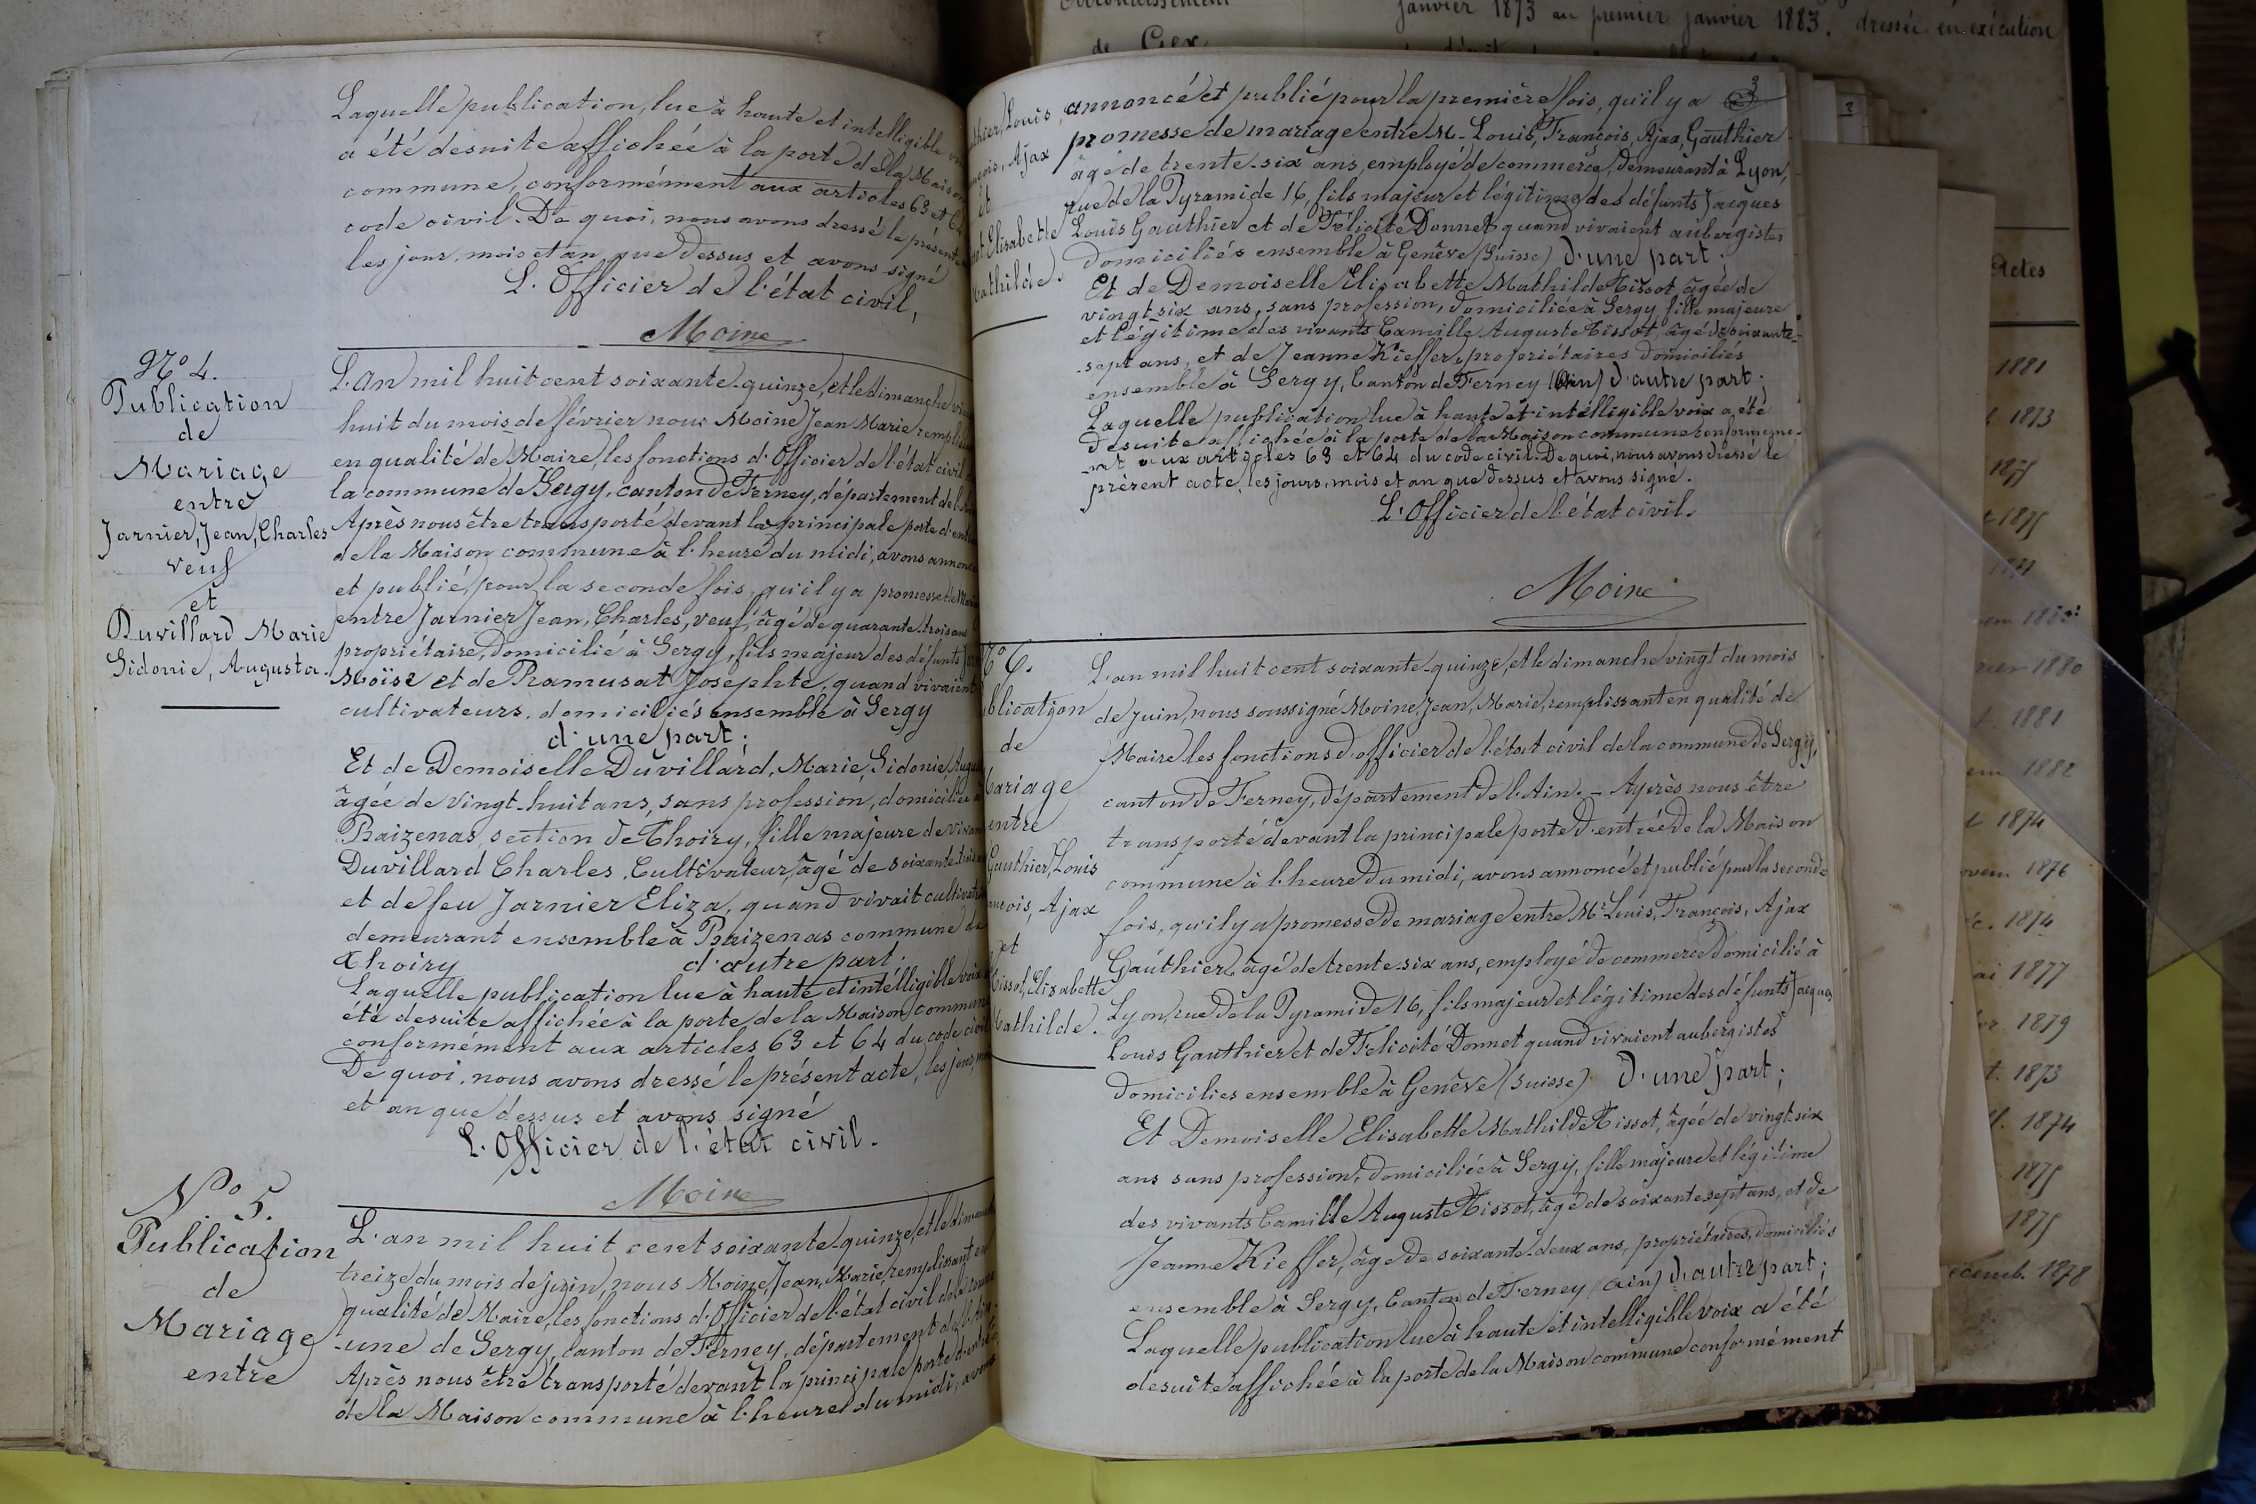 Laquelle publication, lue à haute et intelligible
a été desuite affichée à la porte de la Maison
commune, conformément aux articles 63 et 64
code civil. De quoi, nous avons dressé le présent
les jour, mois et an que dessus et avons signé
L'Officier de l'état civil,
Moine
N° 4.
Publication
de
Mariage
entre
Jarnier, Jean, Charles
veuf
et
Duvillard Marie
Sidonie, Augusta.
L'An mil huit cent soixante-quinze, et le dimanche
huit du mois de février nous Moine Jean Marie
en qualité de Maire, les fonctions d'Officier de l'état civil
la commune de Sergy, canton de Ferney, département de
Après nous être transporté devant la principale porte
de la Maison commune à l'heure du midi, avons
et publié, pour la seconde fois, qu'il y a promesse de
entre Jarnier Jean, Charles, veuf, âgé de quarante-trois ans
propriétaire, domicilié à Sergy, fils majeur des défunts
Moïse et de Ramusat Josephte, quand vivaient
cultivateurs, domiciliés ensemble à Sergy
d'une part;
Et de Demoiselle Duvillard, Marie, Sidonie
âgée de vingt-huit ans, sans profession, domiciliée
Baizenas, section de Thoiry, fille majeure de
Duvillard Charles, Cultivateur, âgé de soixante
et de feu Jarnier Eliza, quand vivait
demeurant ensemble à Baizenas commune de
Thoiry d'autre part.
Laquelle publication lue à haute et intélligible voix
été desuite affichée à la porte de la Maison commune
conformément aux articles 63 et 64 du code
De quoi, nous avons dressé le présent acte, les jour,
et an que dessus et avons signé
L'Officier de l'état civil.
Moine
N° 5.
Publication
de
Mariage
entre
L'an mil huit cent soixante-quinze, et le
treize du mois de juin, nous Moine, Jean, Marie, remplissant en
qualité de Maire, les fonctions d'Officier de l'état civil de la
-une de Sergy, canton de Ferney, département de l'Ain.
Après nous être transporté devant la principale porte
de la Maison commune à l'heure du midi,
3
Louis
Ajax
et
Elisabette
Mathilde.
annoncé et publié pour la première fois, qu'il y a
promesse de mariage entre M. Louis, François, Ajax, Gauthier
âgé de trente-six ans, employé de commerce, demeurant à Lyon,
rue de la Pyramide 16, fils majeur et légitime des défunts Jacques
Louis Gauthier et de Félicité Donnet quand vivaient aubergistes
domiciliés ensemble à Genève (Suisse) d'une part.
Et de Demoiselle Elisabette Mathilde Tissot, âgée de
vingt-six ans, sans profession, domiciliée à Sergy, fille majeure
et légitime des vivants Camille Auguste Tissot, âgé de soixante-
-sept ans, et de Jeanne Kieffer, propriétaires domiciliés
ensemble à Sergy, Canton de Ferney (Ain) d'autre part;
Laquelle publication lue à haute et intélligible voix a été
desuite affichée à la porte de la Maison commune conformeme-
-nt aux articles 63 et 64 du code civil. De quoi, nous avons dressé le
présent acte, les jours, mois et an que dessus et avons signé.
L'Officier de l'état civil.
Moine
N° 6.
Publication
de
Mariage
entre
Gauthier, Louis
François, Ajax
et
Tissot, Elisabette
Mathilde.
L'an mil huit cent soixante-quinze, et le dimanche vingt du mois
de Juin, nous soussigné Moine, Jean, Marie, remplissant en qualité de
Maire les fonctions d'officier de l'état civil de la commune de Sergy,
canton de Ferney, département de l'Ain. - Après nous être
transporté devant la principale porte d'entrée de la Maison
commune à l'heure du midi, avons annoncé et publié pour la seconde
fois, qu'il y a promesse de mariage entre Mr Louis, François, Ajax
Gauthier, âgé de trente-six ans, employé de commerce domicilié à
Lyon, rue de la Pyramide 16, fils majeur et légitime des défunts Jacques
Louis Gauthier et de Felicité Donnet quand vivaient aubergistes
domicilies ensemble à Genève (Suisse) d'une part;
Et Demoiselle Elisabette Mathilde Tissot, âgée de vingt-six
ans sans profession, domiciliée à Sergy, fille majeure et légitime
des vivants Camille Auguste Tissot, âgé de soixante-sept ans, et de
Jeanne Kieffer, âge de soixante-deux ans, propriétaires, domiciliés
ensemble à Sergy, Canton de Ferney (Ain) d'autre part;
Laquelle publication lue à haute et intelligible voix a été
desuite affichée à la porte de la Maison commune conformément
janvier 1873 au premier janvier 1883. dressée en exécution
de Gex
3
Actes
1881
1873
1875
1875
1880
1881
1882
1874
1876
1874
1877
1879
1873
1874
1875
1875
1878